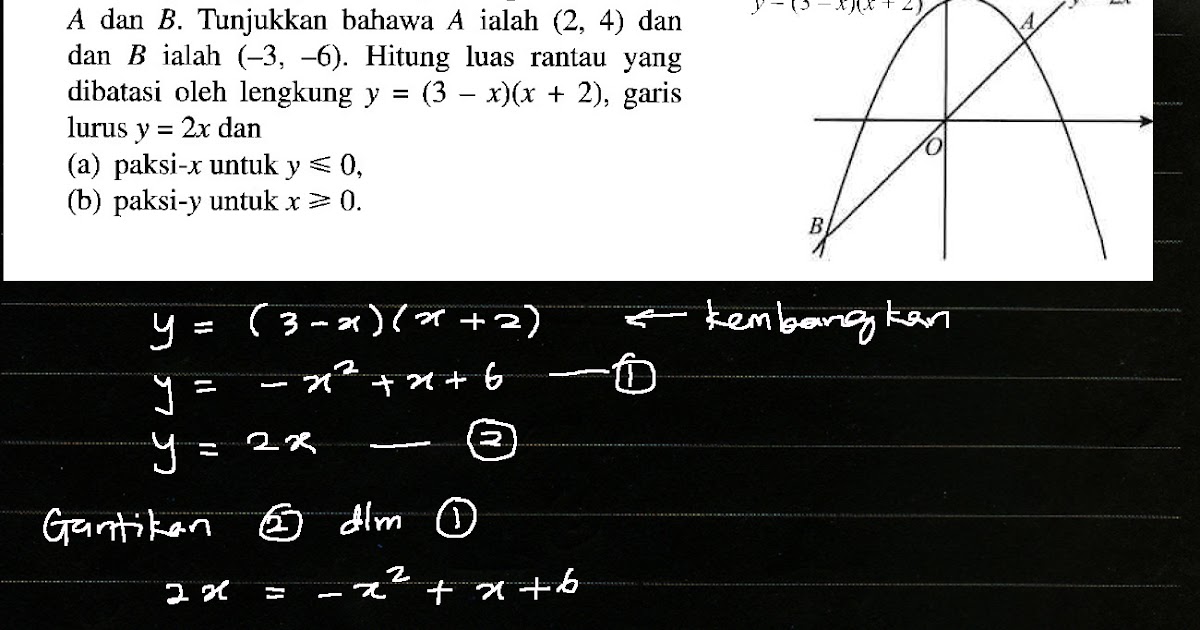 A dan B. Tunjukkan bahawa A ialah (2, 4) dan
dan B ialah (–3, –6). Hitung luas rantau yang
dibatasi oleh lengkung y = (3 – x)(x + 2), garis
lurus y = 2x dan
(a) paksi-x untuk y ⩽ 0,
(b) paksi-y untuk x ⩾ 0.
y = (3 – x)(x + 2)
A
O
B
y = (3 - x)(x + 2) ← kembangkan
y = - x² + x + 6 — ①
y = 2x — ②
Gantikan ② dlm ①
2x = - x² + x + 6